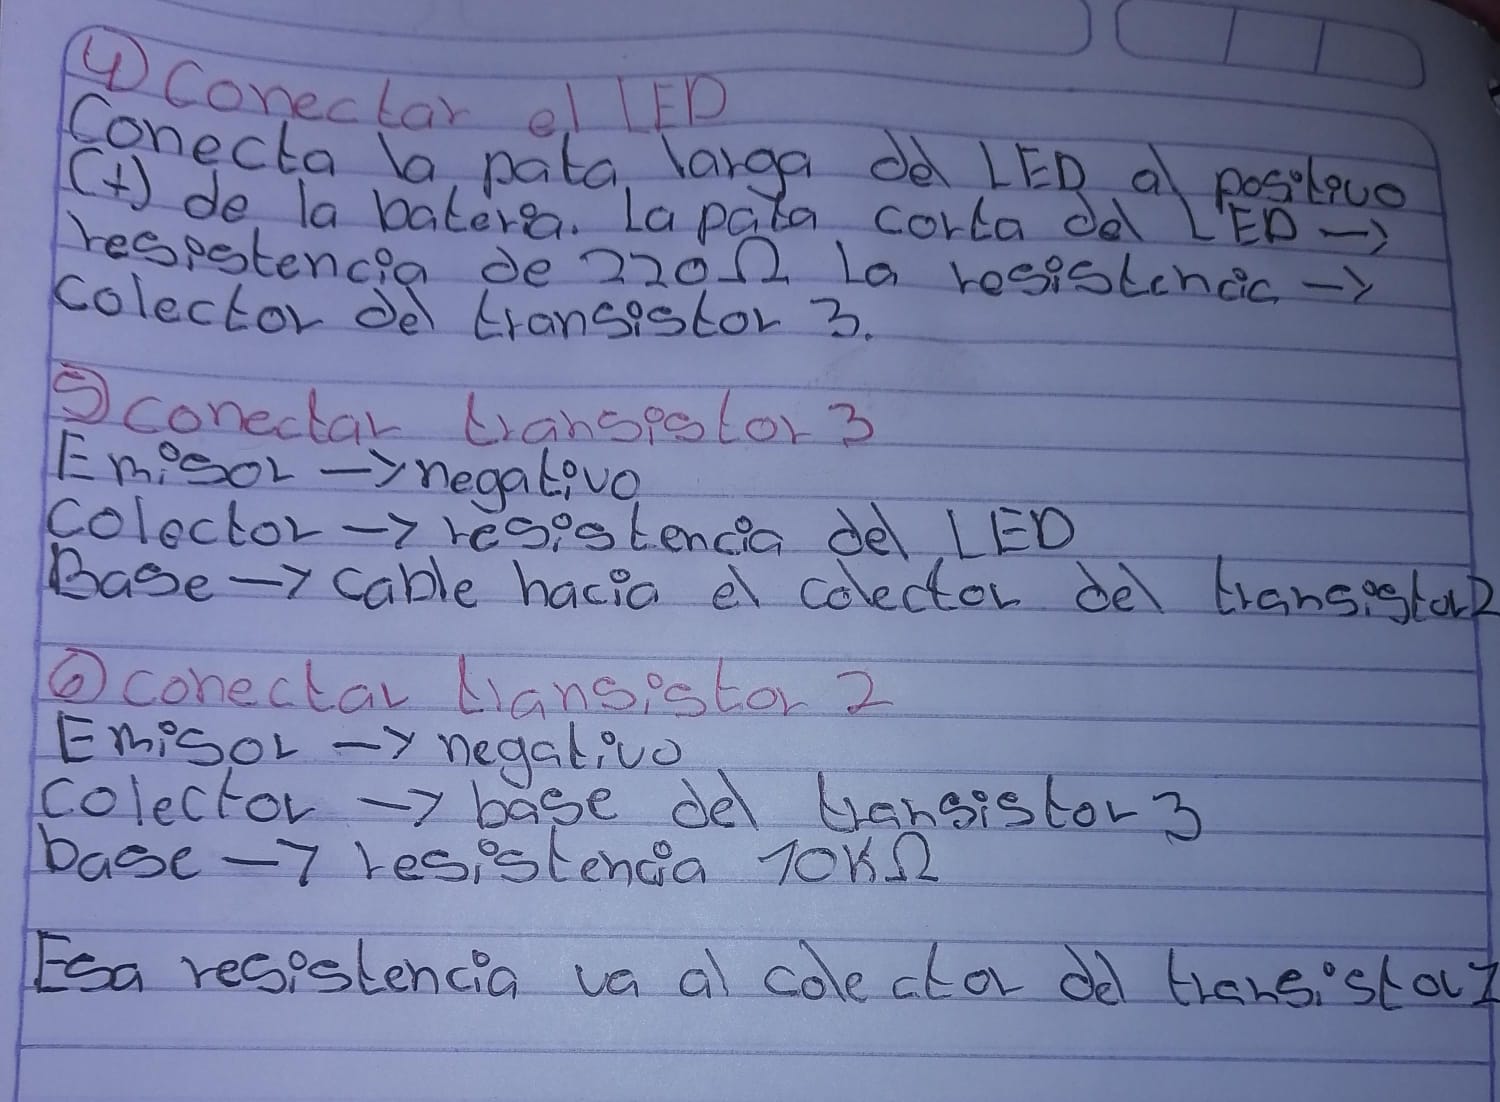 4) Conectar el LED
Conecta la pata larga del LED al positivo
(+) de la bateria. La pata corta del LED →
resistencia de 220 Ω La resistencia →
colector del transistor 3.
5) conectar transistor 3
Emisor → negativo
colector → resistencia del LED
Base → cable hacia el colector del transistor 2
6) conectar transistor 2
Emisor → negativo
colector → base del transistor 3
base → resistencia 10KΩ
Esa resistencia va al colector del transistor 1